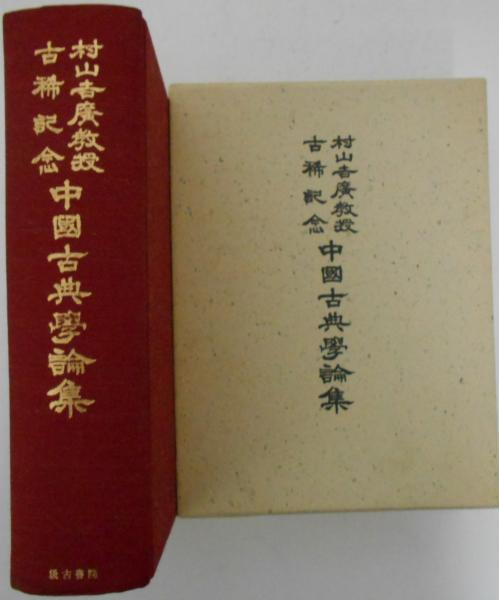 村山吉廣教授
古稀記念
中國古典學論集
汲古書院
村山吉廣教授
古稀記念
中國古典學論集